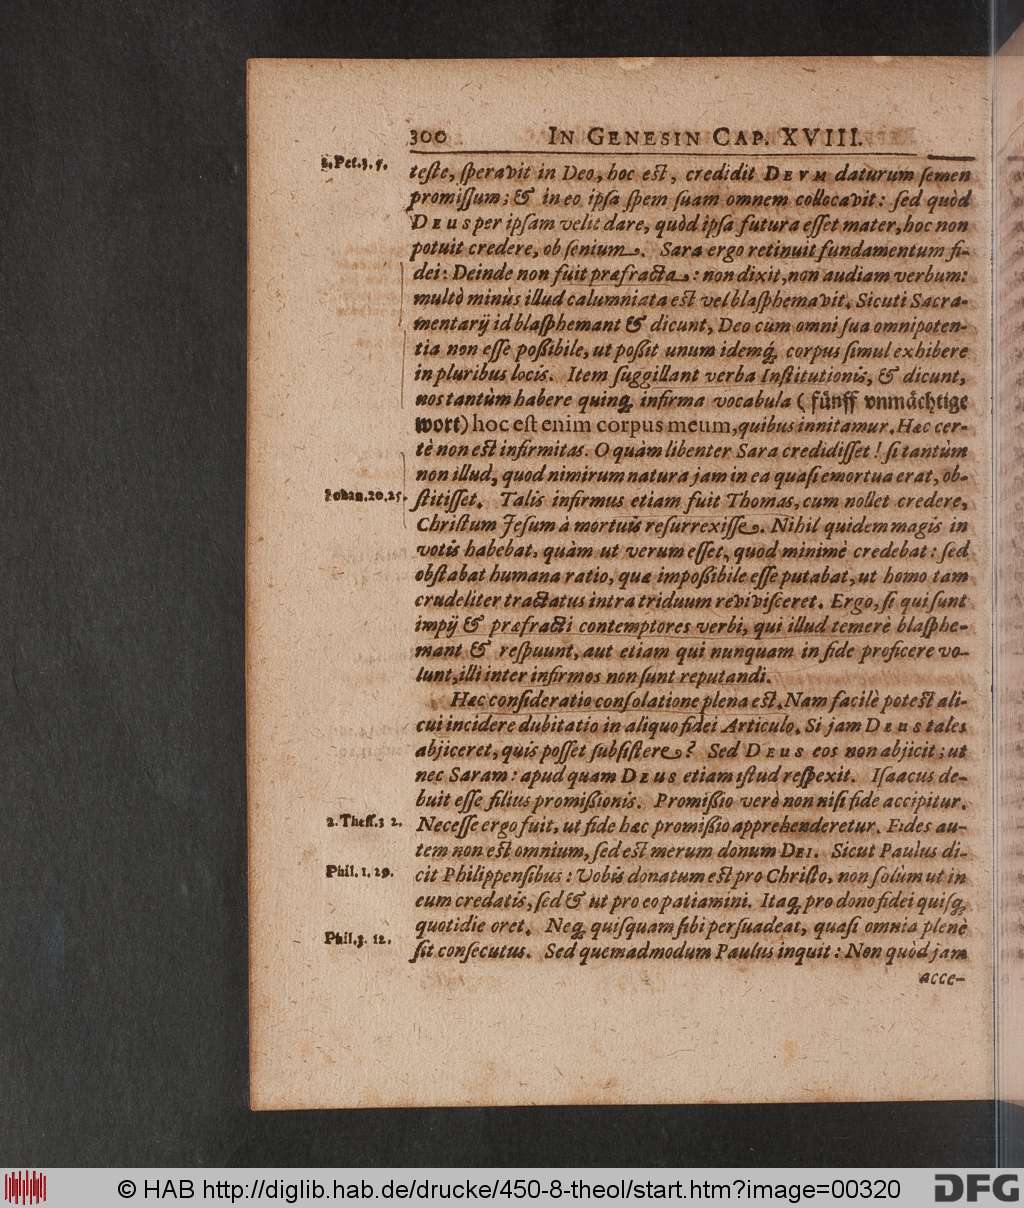 300 IN GENESIN CAP. XVIII.
1. Pet. 3. 5.
teſte, ſperavit in Deo, hoc est, credidit DEVM daturum ſemen
promiſſum; & in eo ipſa ſpem ſuam omnem collocavit: ſed quòd
DEUS per ipſam velit dare, quòd ipſa futura eſſet mater, hoc non
potuit credere, ob ſenium. Sara ergo retinuit fundamentum fi-
dei: Deinde non fuit præfracta: non dixit, non audiam verbum:
multò minùs illud calumniata est vel blaſphemavit. Sicuti Sacra-
mentarij id blaſphemant & dicunt, Deo cum omni ſua omnipoten-
tia non eſſe poßibile, ut poßit unum idemq́; corpus ſimul exhibere
in pluribus locis. Item ſuggillant verba Inſtitutionis, & dicunt,
nos tantùm habere quinq; infirma vocabula (fuͤnff vnmaͤchtige
wort) hoc eſt enim corpus meum, quibus innitamur. Hæc cer-
tè non est infirmitas. O quàm libenter Sara credidiſſet! ſi tantùm
non illud, quod nimirum natura jam in ea quaſi emortua erat, ob-
Johan. 20. 25.
ſtitiſſet. Talis infirmus etiam fuit Thomas, cum nollet credere,
Chriſtum Jeſum à mortuis reſurrexiſſe. Nihil quidem magis in
votis habebat, quàm ut verum eſſet, quod minimè credebat: ſed
obſtabat humana ratio, quæ impoßibile eſſe putabat, ut homo tam
crudeliter tractatus intra triduum reviviſceret. Ergo, ſi qui ſunt
impij & præfracti contemptores verbi, qui illud temerè blaſphe-
mant & reſpuunt, aut etiam qui nunquam in fide proficere vo-
lunt, illi inter infirmos non ſunt reputandi.
Hæc conſideratio conſolatione plena est. Nam facilè potest ali-
cui incidere dubitatio in aliquo fidei Articulo. Si jam DEUS tales
abjiceret, quis poſſet ſubſiſtere? Sed DEUS eos non abjicit; ut
nec Saram: apud quam DEUS etiam iſtud reſpexit. Iſaacus de-
buit eſſe filius promißionis. Promißio verò non niſi fide accipitur.
2. Theſſ. 3 2.
Neceſſe ergo fuit, ut fide hæc promißio apprehenderetur. Fides au-
tem non est omnium, ſed est merum donum DEI. Sicut Paulus di-
Phil. 1. 29.
cit Philippenſibus: Vobis donatum est pro Chriſto, non ſolùm ut in
eum credatis, ſed & ut pro eo patiamini. Itaq; pro dono fidei quiſq;
quotidie oret. Neq; quiſquam ſibi perſuadeat, quaſi omnia plenè
Phil. 3. 12.
ſit conſecutus. Sed quemadmodum Paulus inquit: Non quòd jam
acce-
© HAB http://diglib.hab.de/drucke/450-8-theol/start.htm?image=00320
DFG